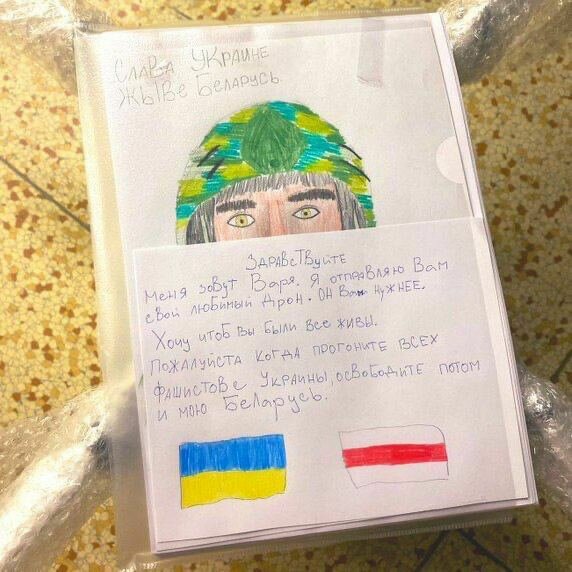 Слава Украине
Жыве Беларусь
Здравствуйте
Меня зовут Варя. Я отправляю Вам
свой любимый дрон. Он Вам нужнее.
Хочу чтоб вы были все живы.
Пожалуйста когда прогоните всех
фашистов с Украины, освободите потом
и мою Беларусь.